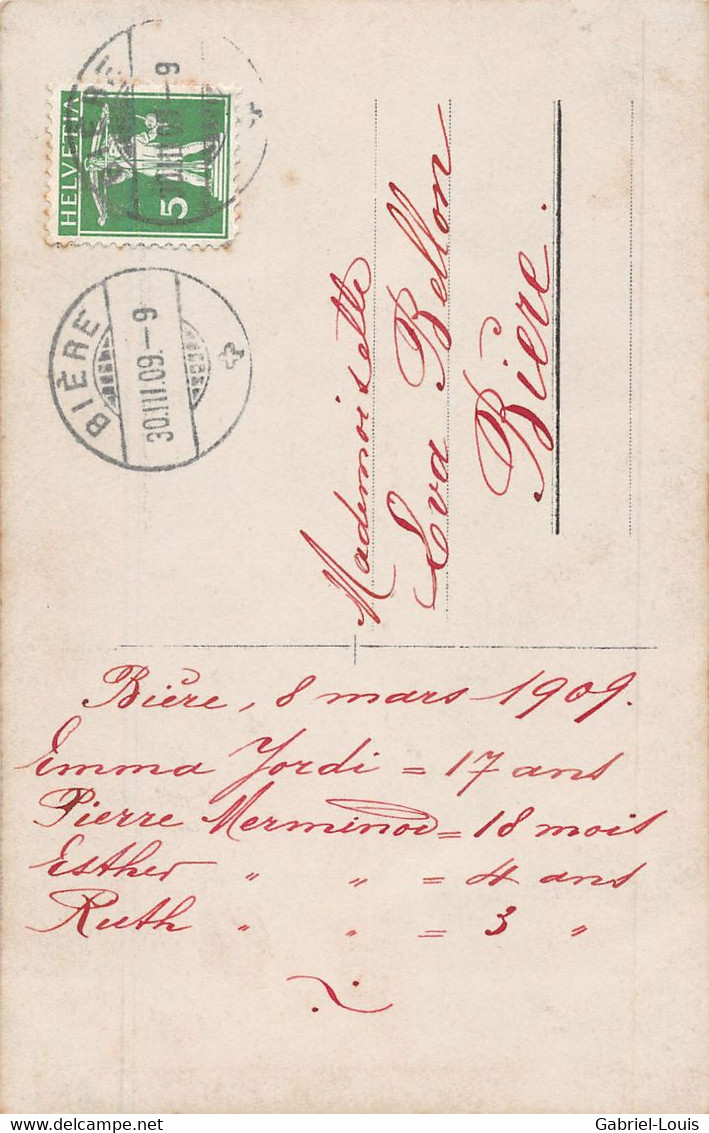 HELVETIA
5
BIÈRE
30.III.09.–9
Mademoiselle
Eva Bellon
Bière.
Bière, 8 mars 1909.
Emma Jordi = 17 ans
Pierre Merminod = 18 mois
Esther " " = 4 ans
Ruth " " = 3 "
delcampe.net
Gabriel-Louis